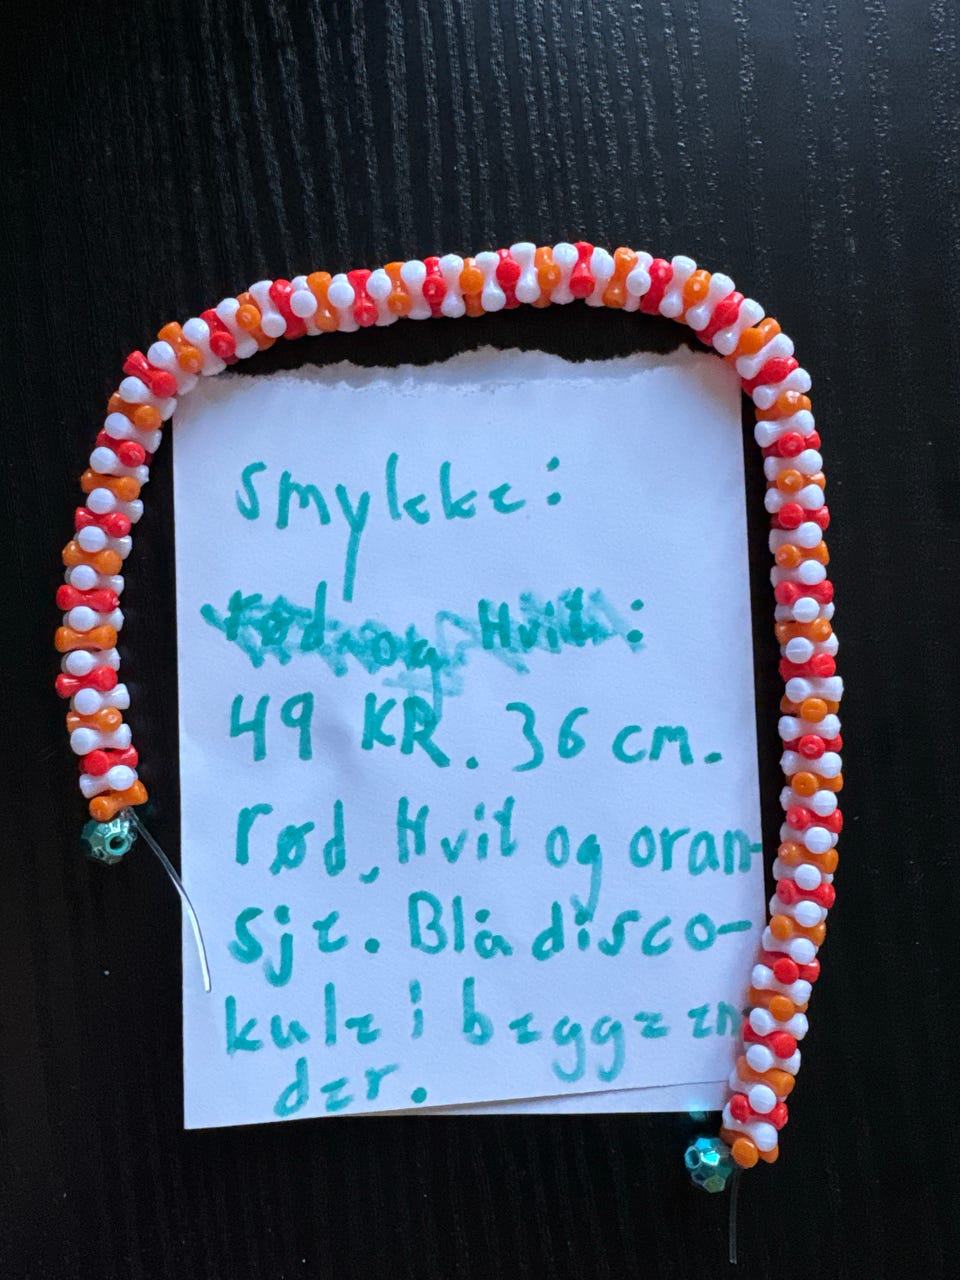 smykke:
rød og Hvit:
49 KR. 36 cm.
rød, Hvit og oran-
sje. Blå disco-
kule i begge en-
der.